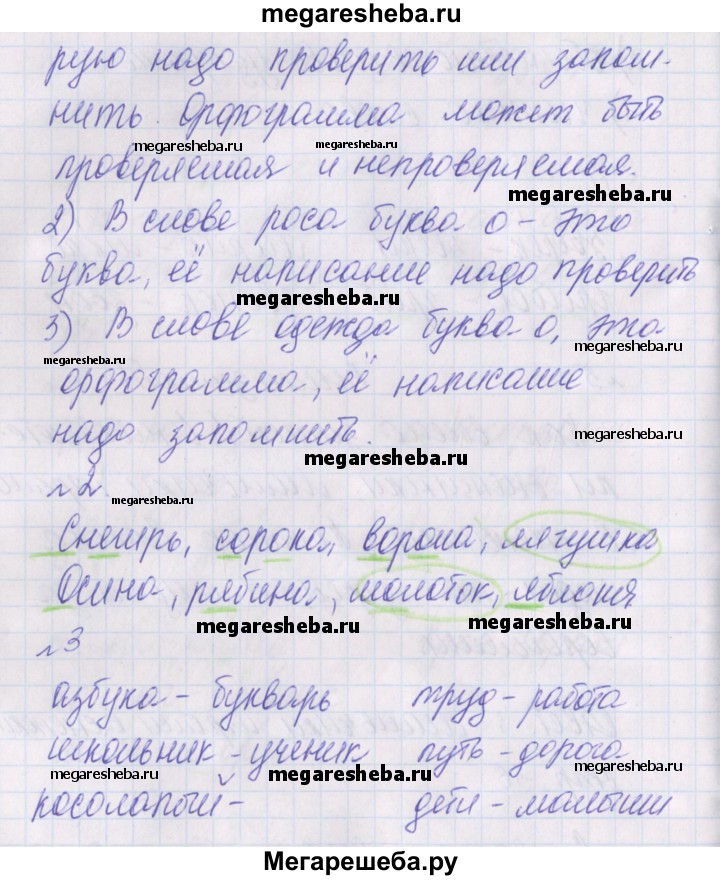 megaresheba.ru
рую надо проверить или запом-
нить. Орфограмма может быть
megaresheba.ru megaresheba.ru
проверяемая и непроверяемая.
megaresheba.ru
2) В слове роса буква о - это
буква, её написание надо проверить
megaresheba.ru
3) В слове одежда буква о, это
megaresheba.ru
megaresheba.ru
орфограмма, её написание
надо запомнить.
megaresheba.ru
megaresheba.ru
№2.
megaresheba.ru
Снегирь, сорока, ворона, лягушка
Осина, рябина, молоток, яблоня
megaresheba.ru
megaresheba.ru
№3
азбука - букварь труд - работа
школьник - ученик путь - дорога
megaresheba.ru
megaresheba.ru
megaresheba.ru
косолапый - дети - малыши
megaresheba.ru
Мегарешеба.ру